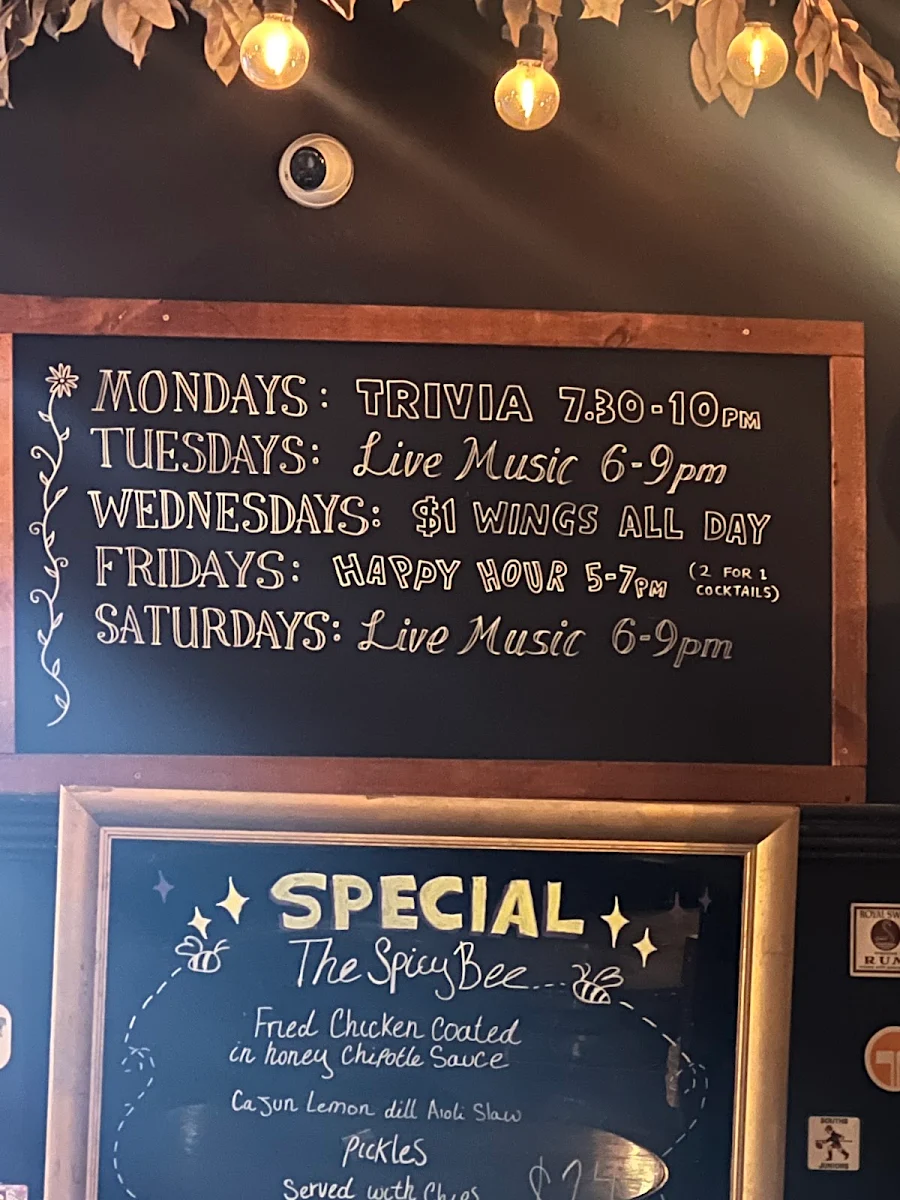 MONDAYS: TRIVIA 7.30-10PM
TUESDAYS: Live Music 6-9pm
WEDNESDAYS: $1 WINGS ALL DAY
FRIDAYS: HAPPY HOUR 5-7PM (2 FOR 1 COCKTAILS)
SATURDAYS: Live Music 6-9pm
SPECIAL
The Spicy Bee...
Fried Chicken coated
in honey Chipotle Sauce
Cajun Lemon dill Aioli Slaw
Pickles
Served with Chips
ROYAL
RUM
SOUTHS
JUNIORS